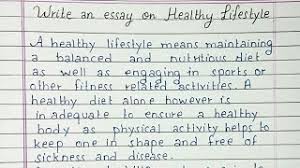 Write an essay on Healthy Lifestyle
A healthy lifestyle means maintaining
a balanced and nutritious diet
as well as engaging in sports or
other fitness related activities. A
healthy diet alone however is
in adequate to ensure a healthy
body as physical activity helps to
keep one in shape and free of
sickness and disease.